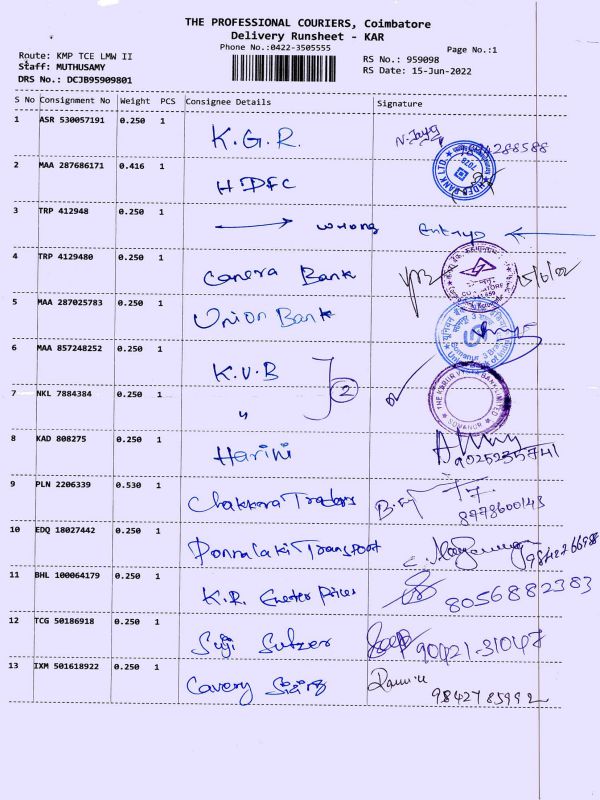 THE PROFESSIONAL COURIERS, Coimbatore
Delivery Runsheet - KAR
Phone No.:0422-3505555
Page No.:1
Route: KMP TCE LMW II
RS No.: 959098
Staff: MUTHUSAMY
RS Date: 15-Jun-2022
DRS No.: DCJB95909801
S No Consignment No Weight PCS Consignee Details Signature
1 ASR 530057191 0.250 1 K.G.R.
2 MAA 287686171 0.416 1 HDFC
3 TRP 412948 0.250 1 wrong
4 TRP 4129480 0.250 1 Canera Bank 15/6/22
5 MAA 287025783 0.250 1 Union Bank
6 MAA 857248252 0.250 1 K.V.B 2
7 NKL 7884384 0.250 1 "
THE KARUR VYSYA BANK LIMITED
SOMANUR
8 KAD 808275 0.250 1 Harini
9025235741
9 PLN 2206339 0.530 1 Chakkara Traders
8778600143
10 EDQ 18027442 0.250 1 Ponnalaki Transport 9842266988
11 BHL 100064179 0.250 1 K.R. 8056882383
12 TCG 50186918 0.250 1 Suji Sulzer 90421-31047
13 IXM 501618922 0.250 1 Cavery
9842785992